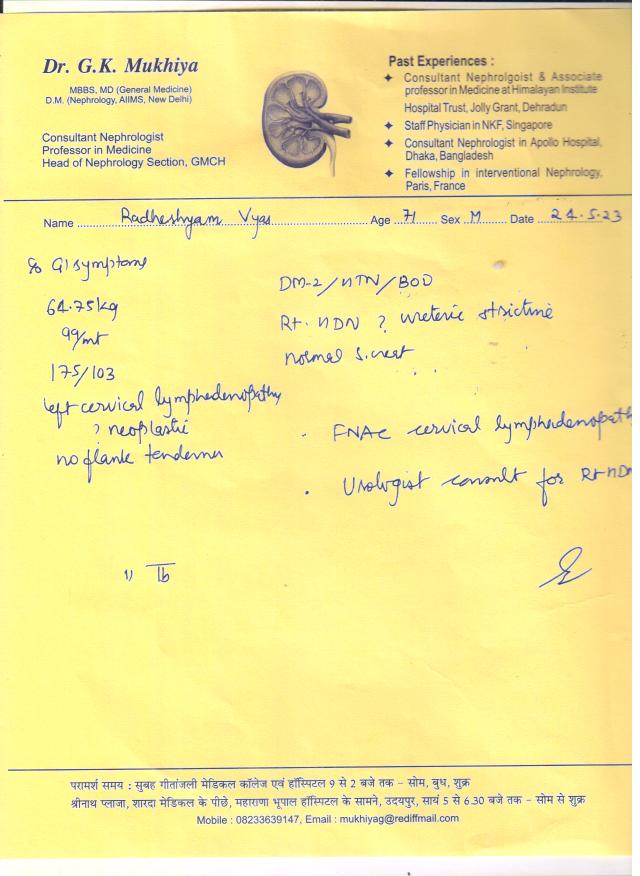 Dr. G.K. Mukhiya
MBBS, MD (General Medicine)
D.M. (Nephrology, AIIMS, New Delhi)
Consultant Nephrologist
Professor in Medicine
Head of Nephrology Section, GMCH
Past Experiences :
✦ Consultant Nephrolgoist & Associate
professor in Medicine at Himalayan Institute
Hospital Trust, Jolly Grant, Dehradun
✦ Staff Physician in NKF, Singapore
✦ Consultant Nephrologist in Apollo Hospital,
Dhaka, Bangladesh
✦ Fellowship in interventional Nephrology,
Paris, France
Name Radheshyam Vyas Age 71 Sex M Date 24.5.23
GI symptoms
64.75kg
99/mt
175/103
left cervical lymphedenopathy
? neoplastic
no flank tenderness
DM-2/HTN/BOO
Rt. HDN ? ureteric stricture
normal S.creat
. FNAC cervical lymphadenopath
. Urologist consult for Rt HDN
परामर्श समय : सुबह गीतांजली मेडिकल कॉलेज एवं हॉस्पिटल 9 से 2 बजे तक - सोम, बुध, शुक्र
श्रीनाथ प्लाजा, शारदा मेडिकल के पीछे, महाराणा भूपाल हॉस्पिटल के सामने, उदयपुर, सायं 5 से 6.30 बजे तक - सोम से शुक्र
Mobile : 08233639147, Email : mukhiyag@rediffmail.com